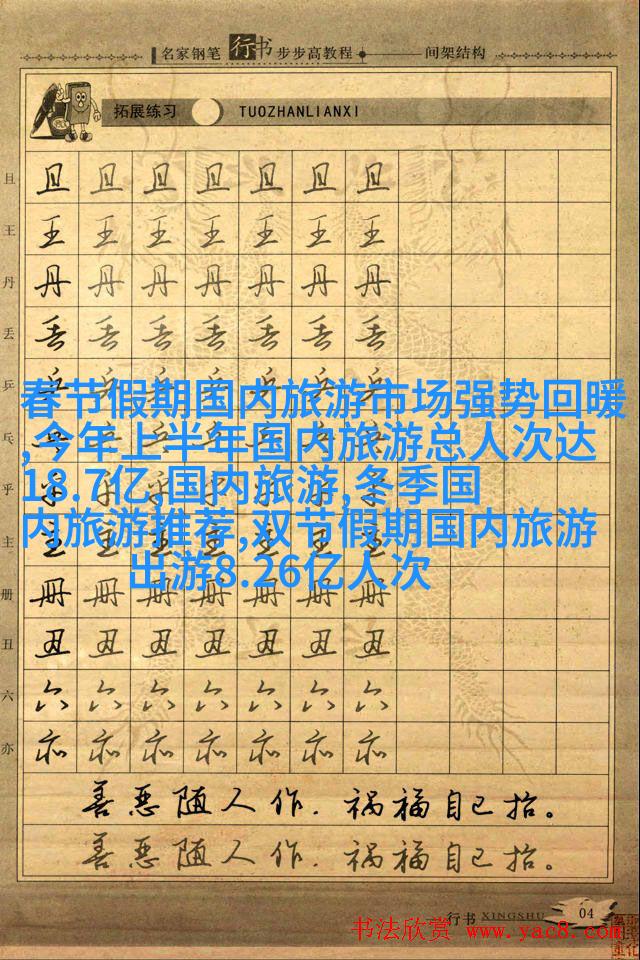 名家钢笔行书步步高教程 间架结构
拓展练习 TUOZHANLIANXI
且 且 且 且 且 且 且 且
王 王 王 王 王 王 王 王
丹 丹 丹 丹 丹 丹 丹 丹
丢 丢 丢 丢 丢 丢 丢 丢
乒
春节假期国内旅游市场强势回暖
乓
,今年上半年国内旅游总人次达
乎
18.7亿,国内旅游,冬季国
主
内旅游推荐,双节假期国内旅游
册 册 册 册 册 册 册 册
出游8.26亿人次
丑 丑 丑 丑 丑 丑 丑 丑
六 六 六 六 六 六 六 六
亦 亦 亦 亦 亦 亦 亦 亦
善恶随人作.祸福自己招。
善恶随人作.祸福自己招。
行书 XINGSHU 04
书法欣赏 www.yac8.com